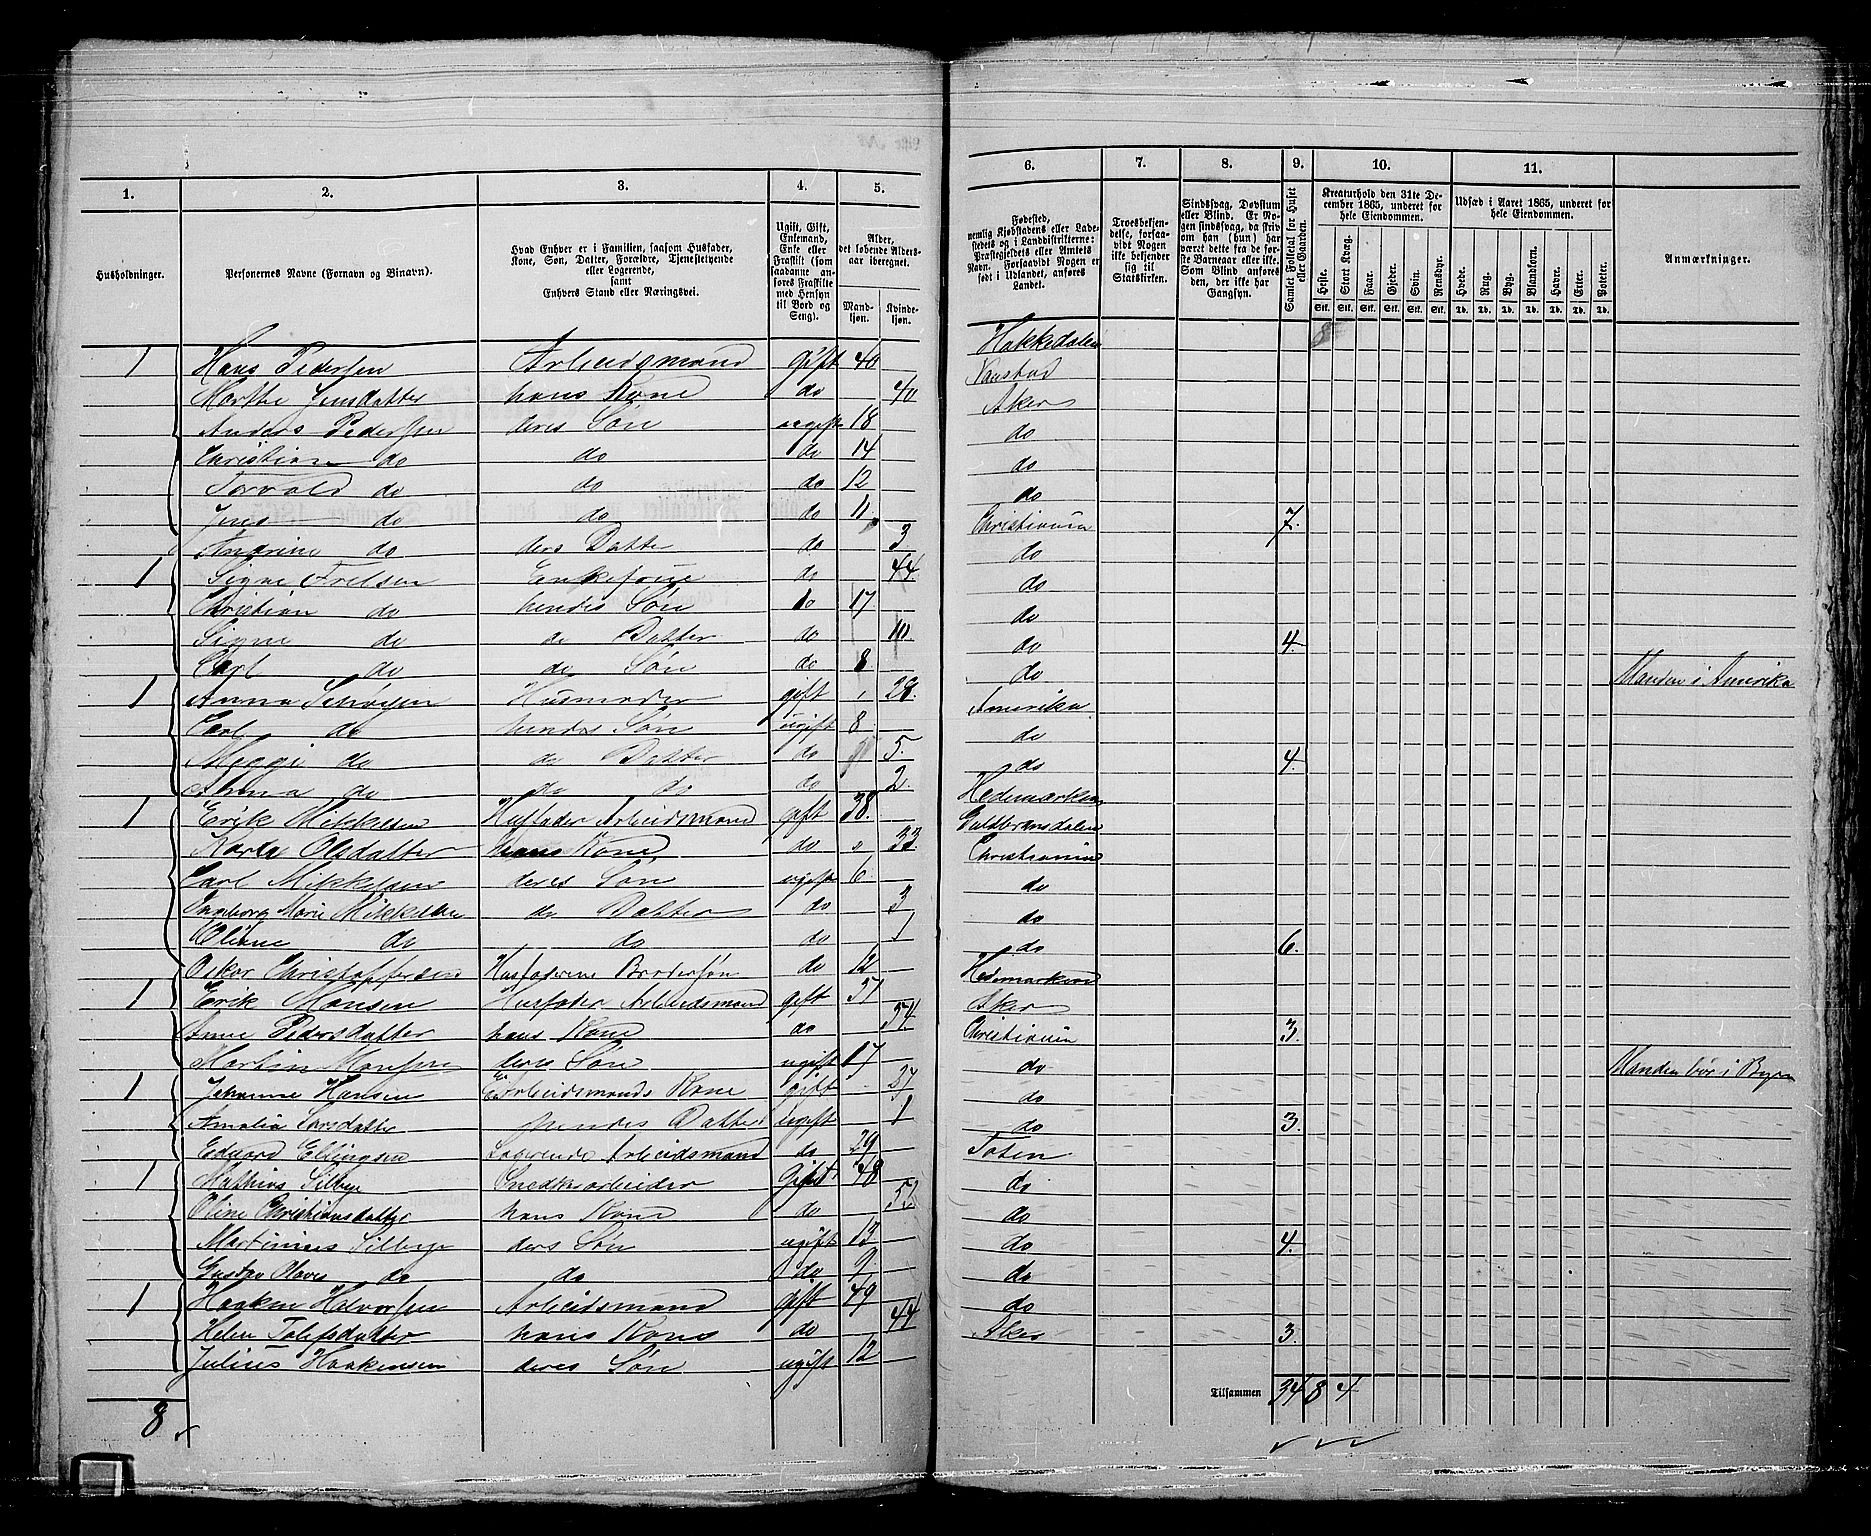 1. 2. 3. 4. 5. 6. 7. 8. 9. 10. 11.
Husholdninger.
Personernes Navne (Fornavn og Binavn).
Hvad Enhver er i Familien, saasom Husfader,
Kone, Søn, Datter, Forældre, Tjenestetyende
eller Logerende,
samt
Enhvers Stand eller Næringsvei.
Ugift, Gift,
Enkemand,
Enke eller
Fraskilt (som
saadanne an-
føres Fraskilte
med Hensyn
til Bord og
Seng).
Alder,
det løbende Alders-
aar iberegnet.
Mand-
kjøn.
Kvinde-
kjøn.
Fødested,
nemlig Kjøbstadens eller Lade-
stedets og i Landdistrikterne:
Præstegjeldets eller Amtets
Navn. Forsaavidt Nogen er
født i Udlandet, anføres
Landet.
Troesbekjen-
delse, forsaa-
vidt Nogen
ikke bekjender
sig til
Statskirken.
Sindssvag, Døvstum
eller Blind. Er No-
gen sindssvag, da skriv
om han (hun) har
været dette fra de før-
ste Barneaar eller ikke.
Som Blind anføres
den, der ikke har
Gangsyn.
Samlet Folketal for Huset
eller Gaarden.
Kreaturhold den 31te De-
cember 1865, underet for
hele Eiendommen.
Heste. Stort Kvæg. Faar. Gjeder. Svin. Rensdyr.
Stk. Stk. Stk. Stk. Stk. Stk.
Udsæd i Aaret 1865, underet for
hele Eiendommen.
Hvede. Rug. Byg. Blandkorn. Havre. Erter. Poteter.
Td. Td. Td. Td. Td. Td. Td.
Anmærkninger.
1 Hans Pedersen Arbeidsmand gift 40 Hakkedalen
Marthe Jensdatter hans Kone do 40 Nanstad
Anders Pedersen deres Søn ugift 18 Aker
Christian do do do 14 do
Torvald do do do 12 do
Jens do do do 11 do
Andrine do ders Datter do 3 Christiania 7.
1 Signe Frelsen Enkefrue do 44 do
Christian do hendes Søn do 17 do
Signe do do Datter do 10 do
Carl do do Søn do 8 do 4
1 Anna Husmoder gift 28. do Manden i Amerika
Carl do hendes Søn ugift 8 Amerika
Meggi do do Datter do 5 do
Anna do do do do 2 do 4.
1 Erik Mikkelsen Husfader Arbeidsmand gift 38. Hedemarken
Kari Olsdatter hans Kone do 33 Guldbransdalen
Carl Mikkelsen deres Søn ugift 6 Christiania
Ingeborg Marie Mikkelsen do Datter do 3 do
Oline do do do 1 do
Oskar Christoffersen Husfaderens Brodersøn do 12 do 6.
1 Erik Hansen Husfader Arbeidsmand gift 51 Hedemarken
Anne Pedersdatter hans Kone do 54 Aker
Martin Hansen deres Søn ugift 17 Christiania 3.
1 Johanne Hansen En Arbeidsmands Kone gift 27 do Manden bor i Byen
Amalia Larsdatter hendes Datter ugift 1 do
Edvard Ellingsen Logerende Arbeidsmand do 29 do 3.
1 Mathias Silberg Snedkerarbeider Gift 48 Toten
Oline Christiansdatter hans Kone do 52 do
Martinius Silberg ders Søn ugift 13 do
Gustav Olaves do do do 9 do 4.
1 Haaken Halvorsen Arbeidsmand gift 49 do
Helene Tolefsdatter hans Kone do 44 do
Julius Haakensen deres Søn ugift 12 Aker 3.
8
Tilsammen 34 8 4